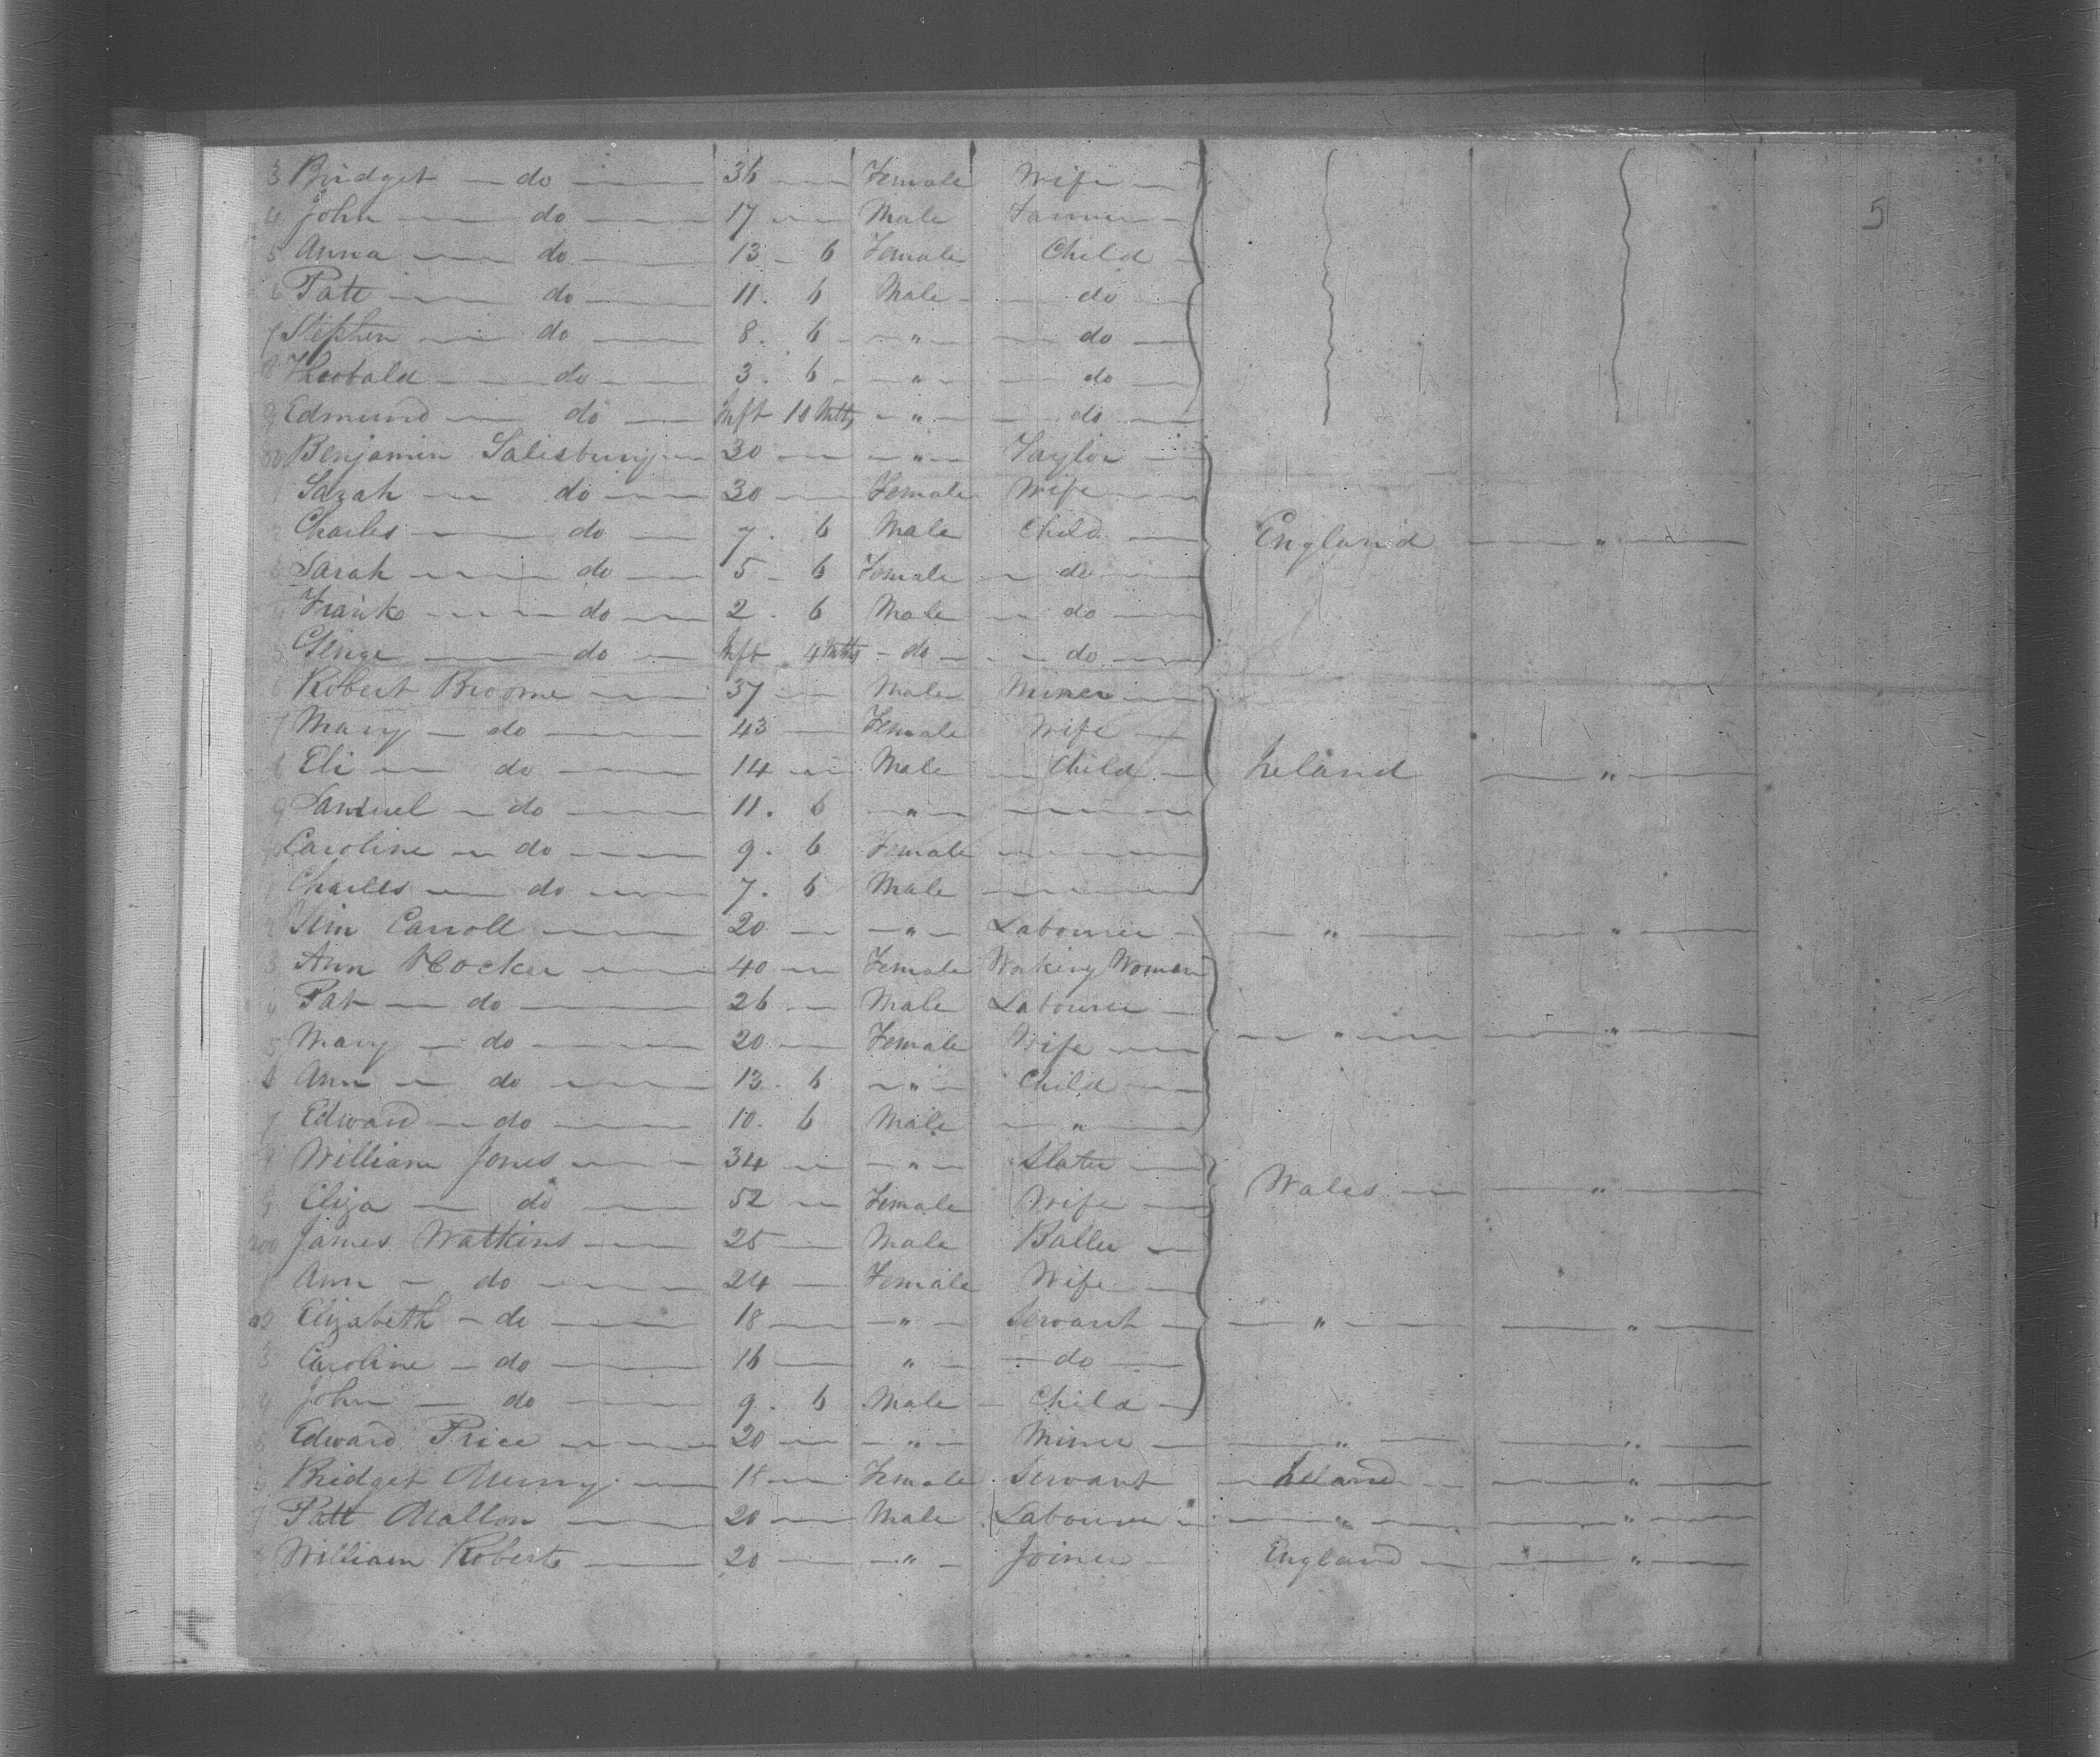 5
3 Bridget do 36 Female Wife
4 John do 17 Male Farmer
5 Anna do 13 - 6 Female Child
6 Patt do 11. 6 Male do
7 Stephen do 8. 6 " do
8 Theobald do 3. 6 " do
9 Edmund do Inft 10 Mths " do
Benjamin Salisbury 30 " Taylor
1 Sarah do 30 Female Wife
2 Charles do 7. 6 Male Child England "
3 Sarah do 5 - 6 Female do
4 Frank do 2. 6 Male do
5 do Inft 4 Mths do do
6 Robert Broome 37 Male Miner
7 Mary do 43 Female Wife
8 Eli do 14 Male Child Ireland "
9 Samuel do 11. 6 "
Caroline do 9. 6 Female
1 Charles do 7. 6 Male
2 Tim Carroll 20 " Labourer " "
3 Ann 40 Female Working Woman
4 Pat do 26 Male Labourer
5 Mary do 20 Female Wife " "
Ann do 13. 6 " Child
7 Edward do 10. 6 Male "
William Jones 34 " Slater
9 Eliza do 52 Female Wife Wales "
200 James Watkins 25 Male
1 Ann do 24 Female Wife
Elizabeth do 18 " Servant " "
3 Caroline do 16 " do
4 John do 9. 6 Male Child
5 Edward Price 20 " Miner " "
6 Bridget 18 Female Servant Ireland "
7 Patt Mallon 20 Male Labourer " "
William Roberts 20 " Joiner England "